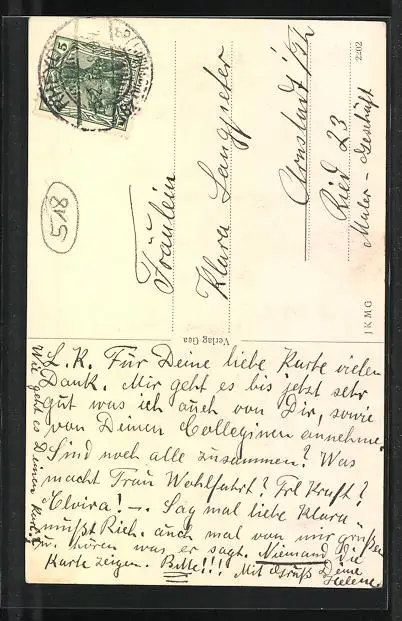 Fräulein
Klara Langpeter
Arnstadt i/Th
Ried 23
Maler-Geschäft
2202
JKMG
Verlag Gea
518
5
L. K. Für Deine liebe Karte vielen
Dank. Mir geht es bis jetzt sehr
gut was ich auch von Dir, sowie
von Deinen Colleginen annehme.
Sind noch alle zusammen? Was
macht Frau Wohlfahrt? Frl Kraft?
Elvira! –. Sag mal liebe Klara
mußt Rich. auch mal von mir grüßen
u. hören was er sagt. Niemand die
Karte zeigen. Bitte!!! Mit Gruß Deine
Helene
Wie geht es Deinem Karl?